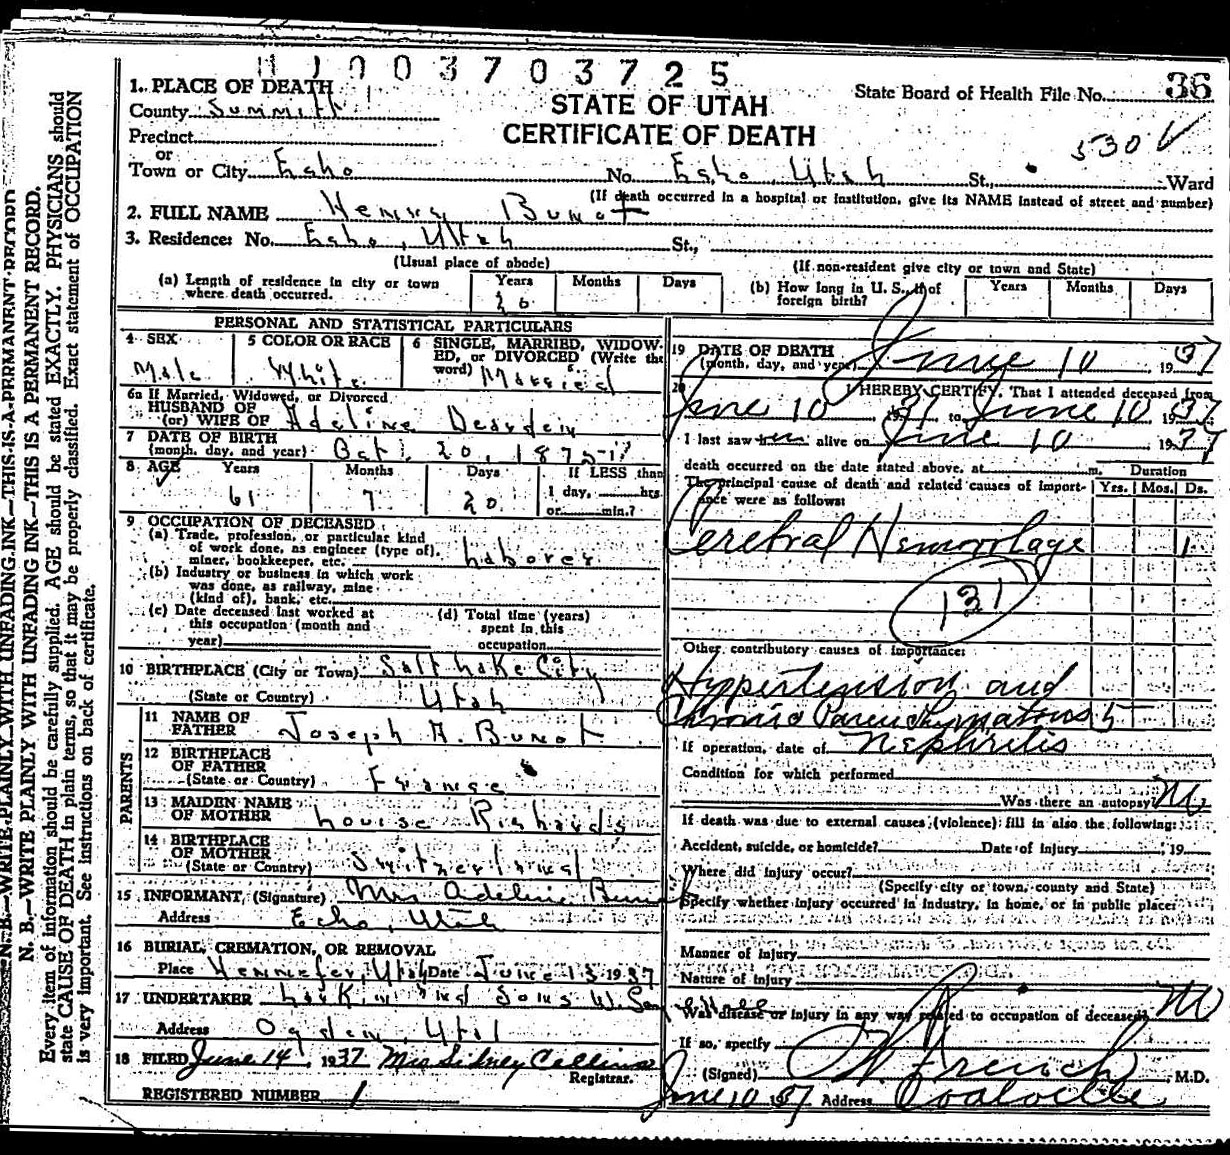 N. B.—WRITE PLAINLY WITH UNFADING INK—THIS IS A PERMANENT RECORD.
N. B.—WRITE PLAINLY WITH UNFADING INK—THIS IS A PERMANENT RECORD.
Every item of information should be carefully supplied. AGE should be stated EXACTLY. PHYSICIANS should
state CAUSE OF DEATH in plain terms, so that it may be properly classified. Exact statement of OCCUPATION
is very important. See instructions on back of certificate.
003703725
1. PLACE OF DEATH
County Summitt
Precinct
or
Town or City Echo No. Echo, Utah St., Ward
STATE OF UTAH
CERTIFICATE OF DEATH
State Board of Health File No. 36
530 V
(If death occurred in a hospital or institution, give its NAME instead of street and number)
2. FULL NAME Henry Bunot
3. Residence: No. Echo, Utah St.,
(Usual place of abode) (If non-resident give city or town and State)
(a) Length of residence in city or town where death occurred. Years 20 Months Days
(b) How long in U. S., if of foreign birth? Years Months Days
PERSONAL AND STATISTICAL PARTICULARS
4 SEX Male
5 COLOR OR RACE White
6 SINGLE, MARRIED, WIDOWED, or DIVORCED (Write the word) Married
6a If Married, Widowed, or Divorced
HUSBAND OF
(or) WIFE OF Adeline Dearden
7 DATE OF BIRTH
(month, day, and year) Oct. 20, 1875
8 AGE Years 61 Months 7 Days 20 If LESS than 1 day, hrs. or min.?
9 OCCUPATION OF DECEASED
(a) Trade, profession, or particular kind of work done, as engineer (type of), miner, bookkeeper, etc. Laborer
(b) Industry or business in which work was done, as railway, mine (kind of), bank, etc.
(c) Date deceased last worked at this occupation (month and year)
(d) Total time (years) spent in this occupation
10 BIRTHPLACE (City or Town) Salt Lake City
(State or Country) Utah
PARENTS
11 NAME OF FATHER Joseph A. Bunot
12 BIRTHPLACE OF FATHER
(State or Country) France
13 MAIDEN NAME OF MOTHER Louise Richards
14 BIRTHPLACE OF MOTHER
(State or Country) Switzerland
15 INFORMANT, (Signature) Mrs Adeline Bunot
Address Echo, Utah
16 BURIAL, CREMATION, OR REMOVAL
Place Hennefer, Utah Date June 13 1937
17 UNDERTAKER Larkin and Sons
Address Ogden, Utah
18 FILED June 14, 1937 Mrs Sidney Collins
Registrar.
REGISTERED NUMBER 1
19 DATE OF DEATH
(month, day, and year) June 10 1937
20 I HEREBY CERTIFY, That I attended deceased from
June 10 1937 to June 10 1937
I last saw him alive on June 10 1937
death occurred on the date stated above, at m. Duration
The principal cause of death and related causes of importance were as follows: Yrs. Mos. Ds.
Cerebral Hemorrhage 1
131
Other contributory causes of importance:
Hypertension and
Chronic Parenchymatous 5
Nephritis
If operation, date of
Condition for which performed
Was there an autopsy? No
If death was due to external causes (violence) fill in also the following:
Accident, suicide, or homicide? Date of injury 19
Where did injury occur?
(Specify city or town, county and State)
Specify whether injury occurred in industry, in home, or in public place:
Manner of injury
Nature of injury
Was disease or injury in any way related to occupation of deceased? No
If so, specify
(Signed) French, M.D.
June 10 1937 Address Coalville